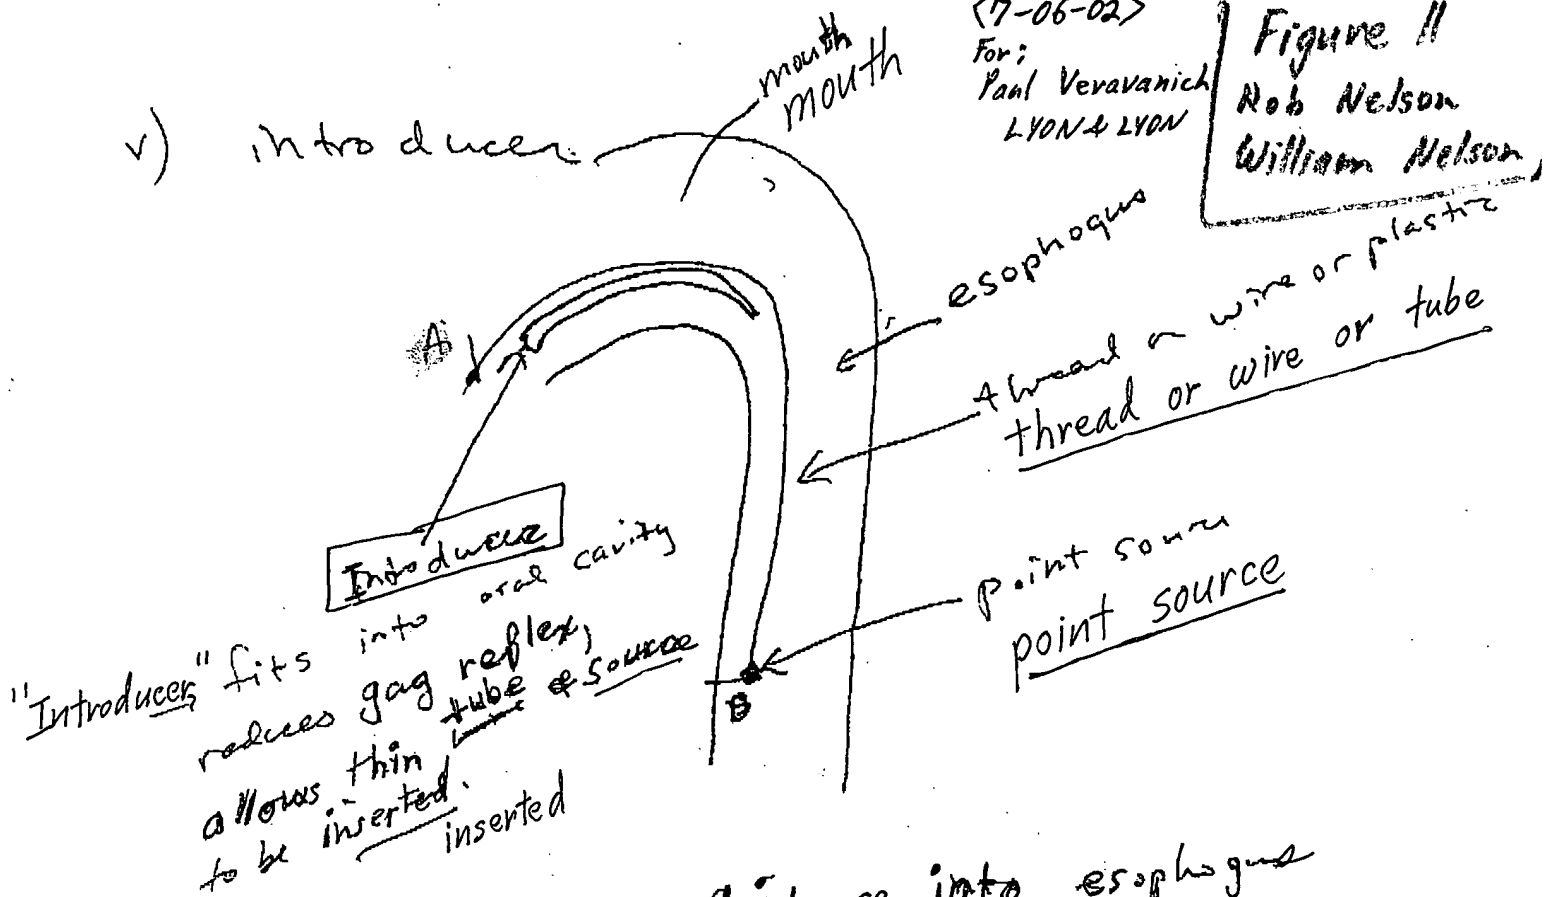 <7-06-02>
For:
Paul Veravanich
LYON & LYON
Figure 11
Rob Nelson
William Nelson
v) introducer
mouth
mouth
esophogus
thread or wire or plastic
thread or wire or tube
A
Introducer
point source
point source
B
"Introducer" fits into oral cavity
reduces gag reflex,
allows thin tube & source
to be inserted.
inserted
into esophogus